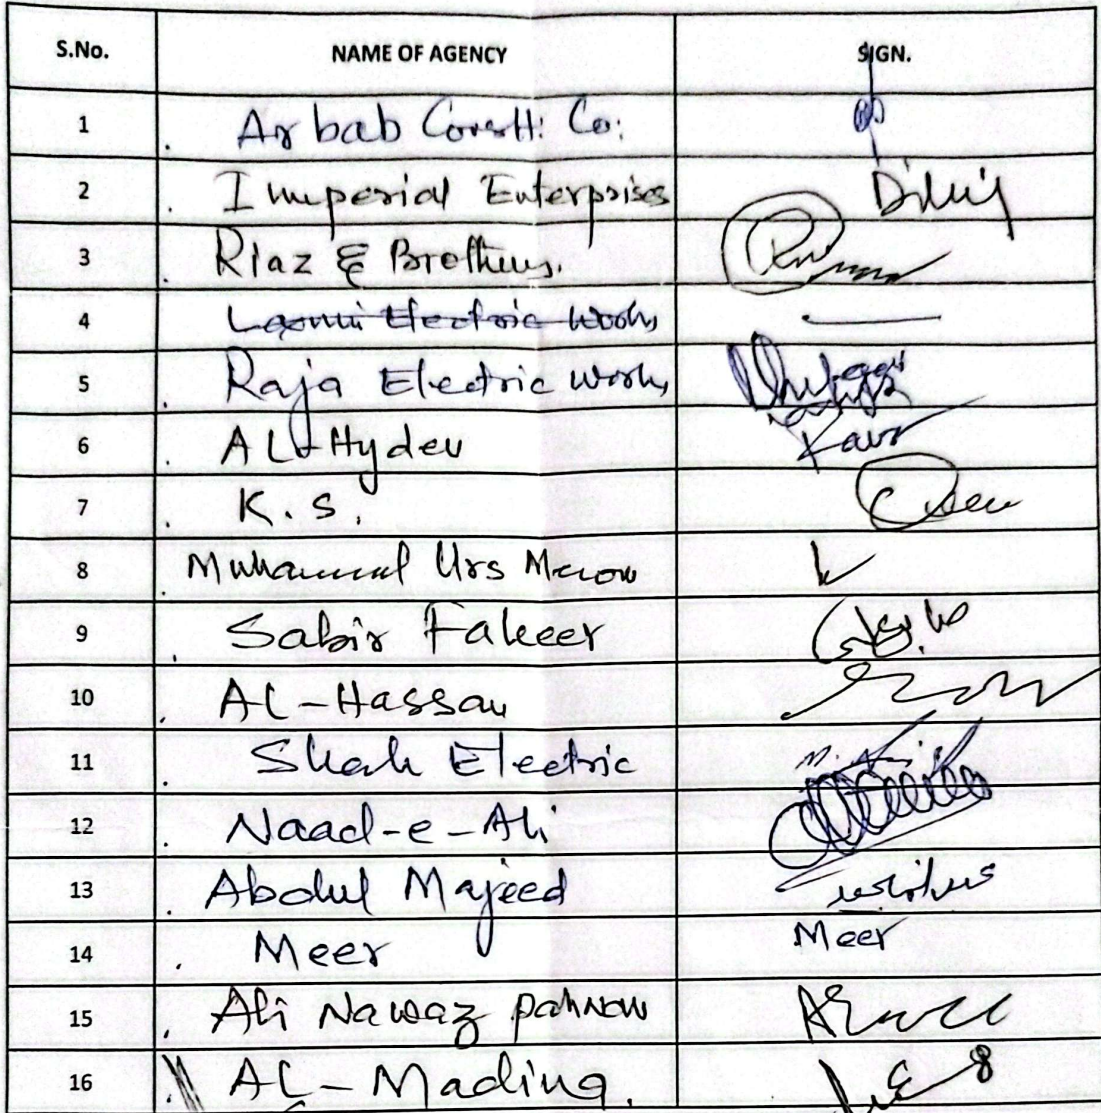 S.No. NAME OF AGENCY SIGN.
1 Arbab Constt: Co:
2 Imperial Enterprises
3 Riaz & Brothers.
4 Laxmi Electric Works
5 Raja Electric Works
6 AL-Hyder
7 K.S.
8 Muhammad Urs
9 Sabir Fakeer
10 AL-Hassan
11 Shah Electric
12 Naad-e-Ali
13 Abdul Majeed
14 Meer Meer
15 Ali Nawaz
16 AL-Madina